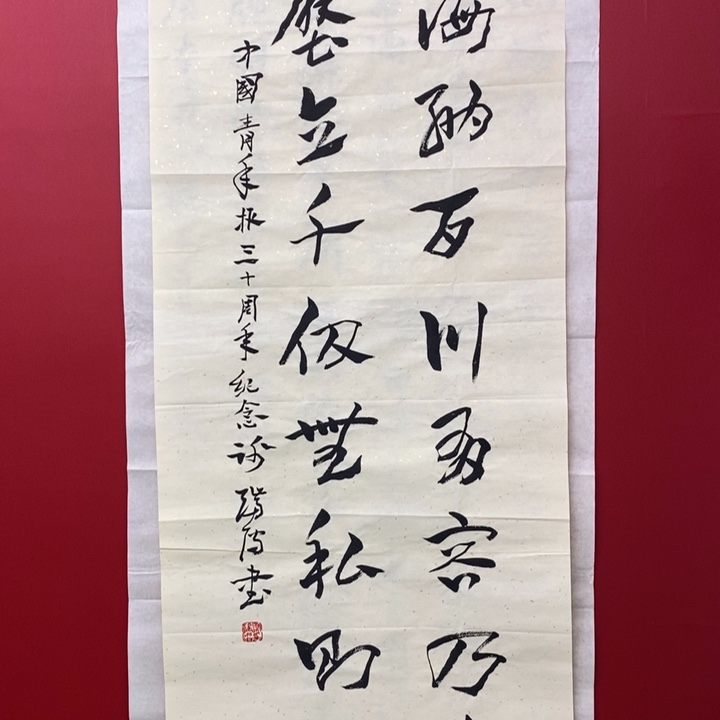 海納百川有容乃
壁立千仞無私則
中國青年报三十周年纪念 书